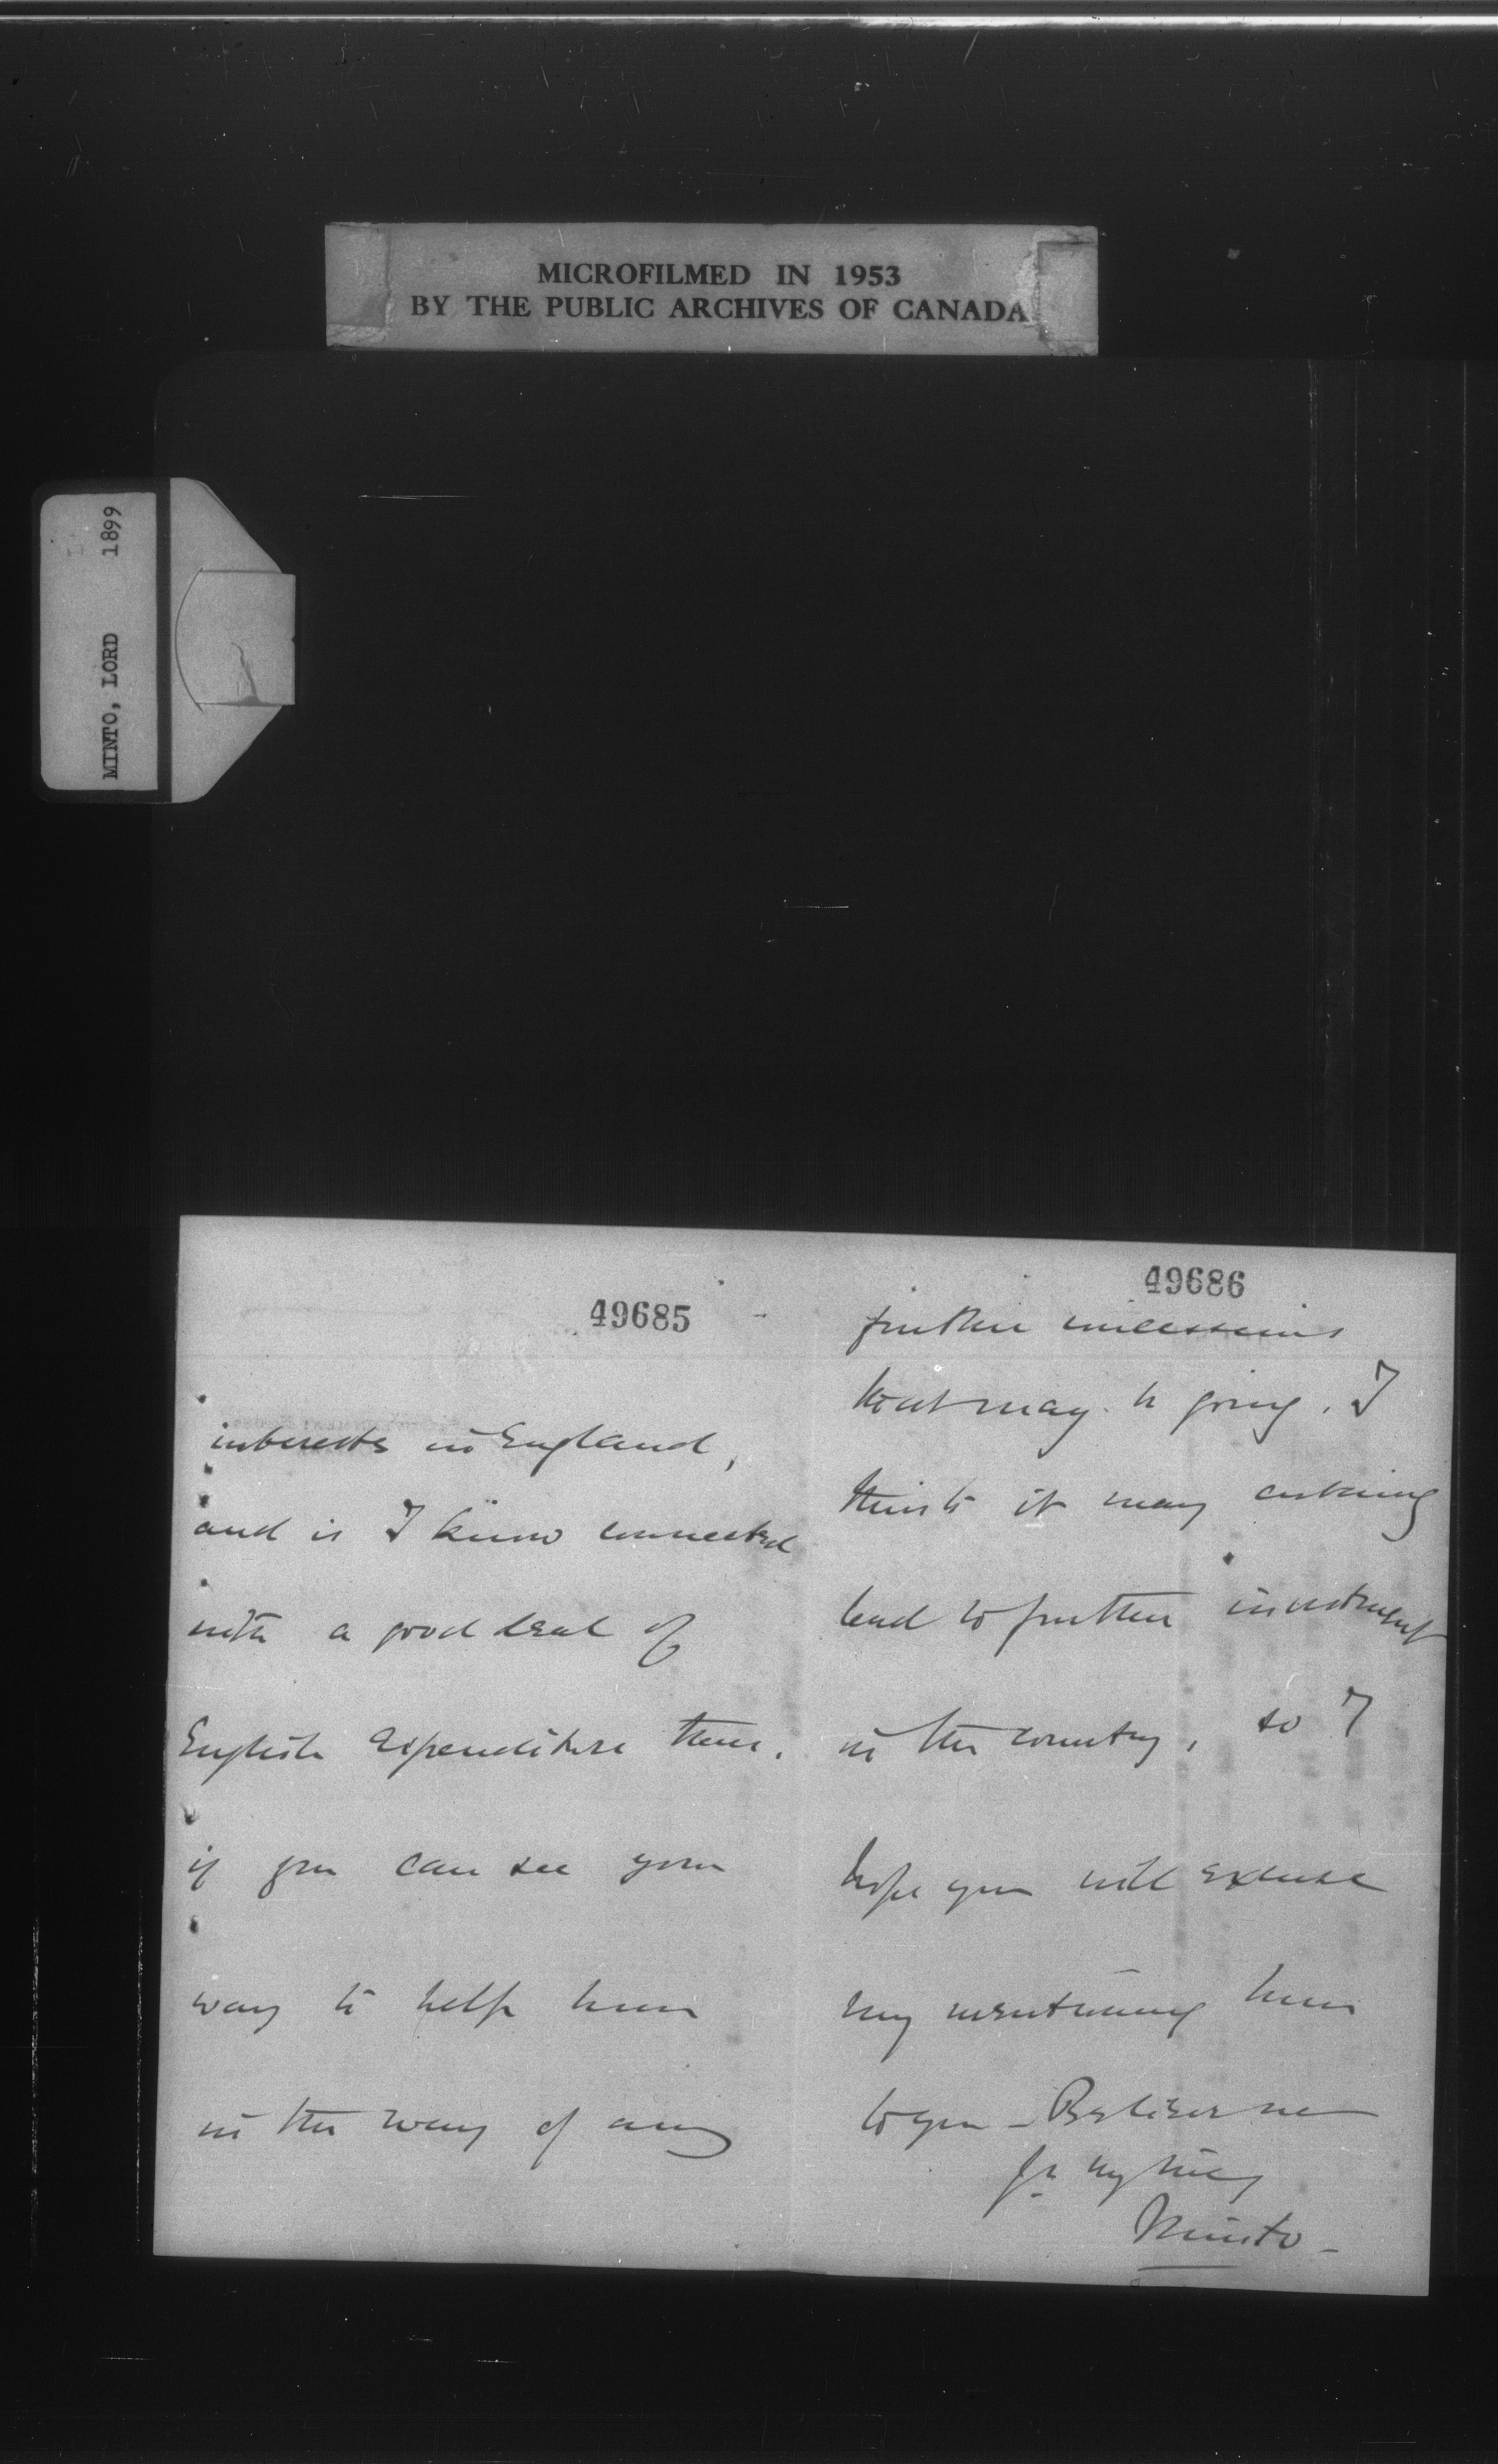 MICROFILMED IN 1953
BY THE PUBLIC ARCHIVES OF CANADA
MINTO, LORD 1899
49685
interests in England,
and is I know connected
with a good deal of
English expenditure there.
if you can see your
way to help him
in the way of any
49686
further concessions
that may be going. I
think it may certainly
lead to further investment
in the country, so I
hope you will excuse
my mentioning him
to you – Believe me
Minto –